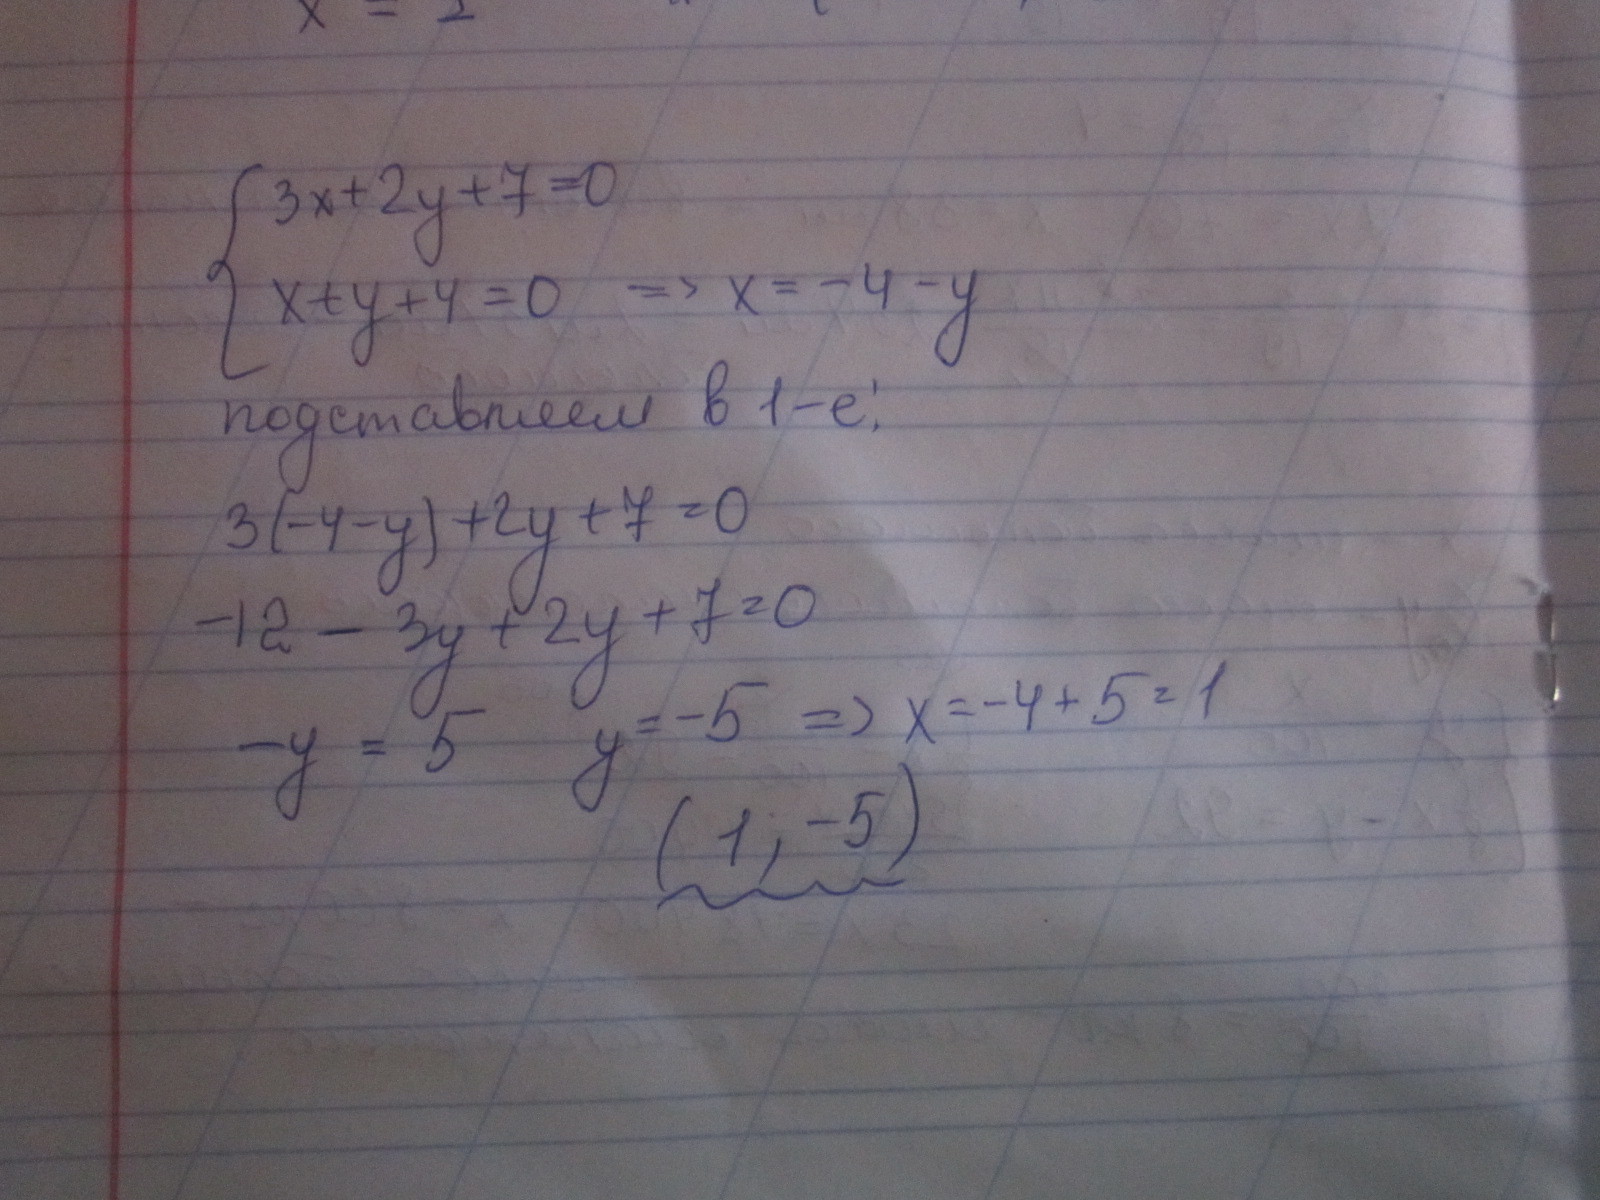 x = 2
{ 3x+2y+7=0
x+y+4=0 => x=-4-y
подставляем в 1-е:
3(-4-y)+2y+7=0
-12-3y+2y+7=0
-y = 5 y=-5 => x=-4+5=1
(1; -5)